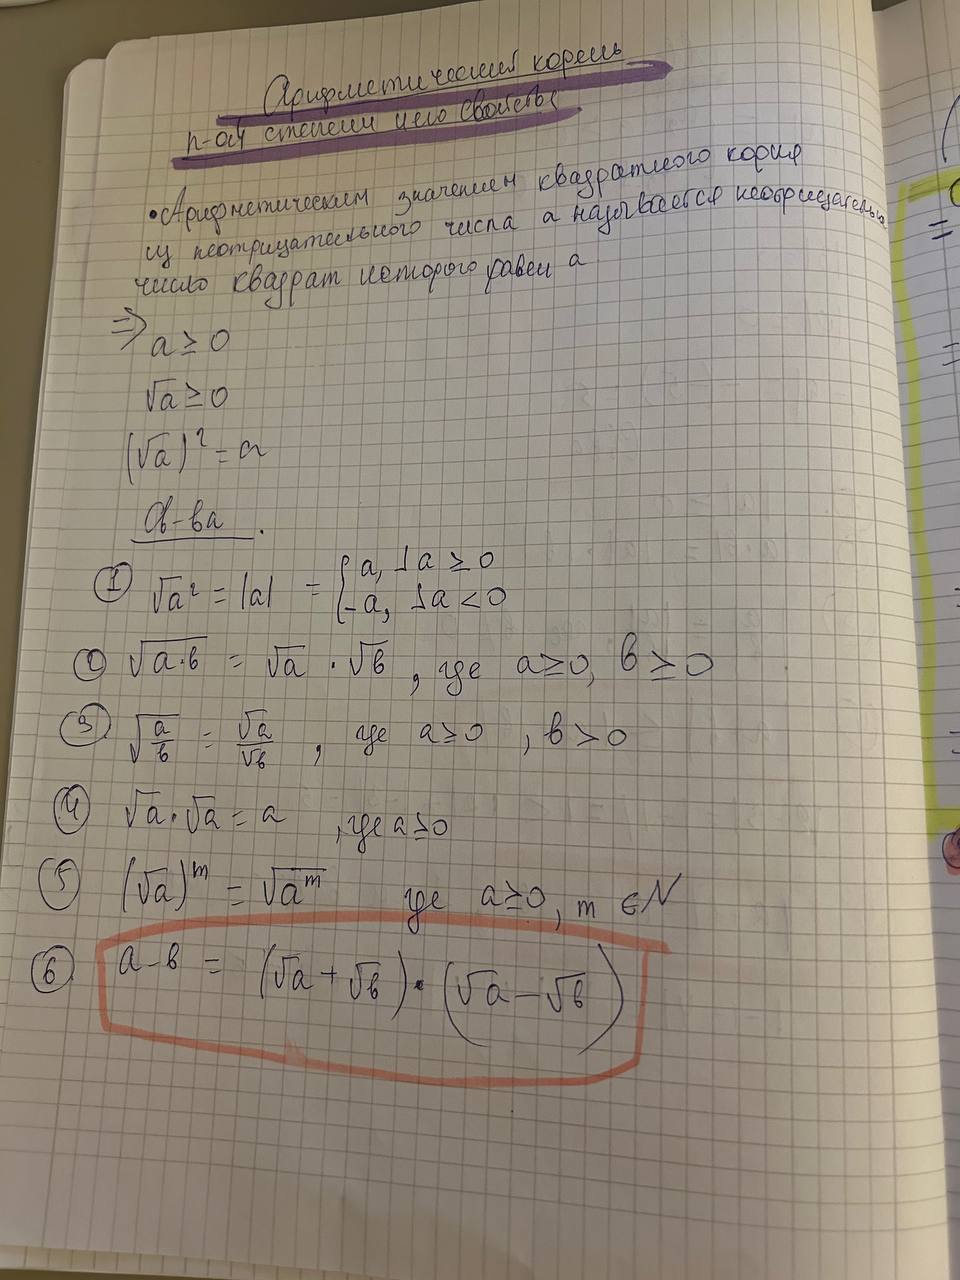 Арифметический корень
n-ой степени и его свойства
• Арифметическим значением квадратного корня
из неотрицательного числа а называется неотрицательное
число квадрат которого равен а
⇒ a ≥ 0
√a ≥ 0
(√a)² = a
Св-ва.
① √a² = |a| = { a, a ≥ 0
-a, a < 0
② √a·b = √a · √b, где a ≥ 0, b ≥ 0
③ √a/b = √a/√b, где a ≥ 0, b > 0
④ √a · √a = a, где a ≥ 0
⑤ (√a)^m = √a^m где a ≥ 0, m ∈ N
⑥ a - b = (√a + √b) · (√a - √b)